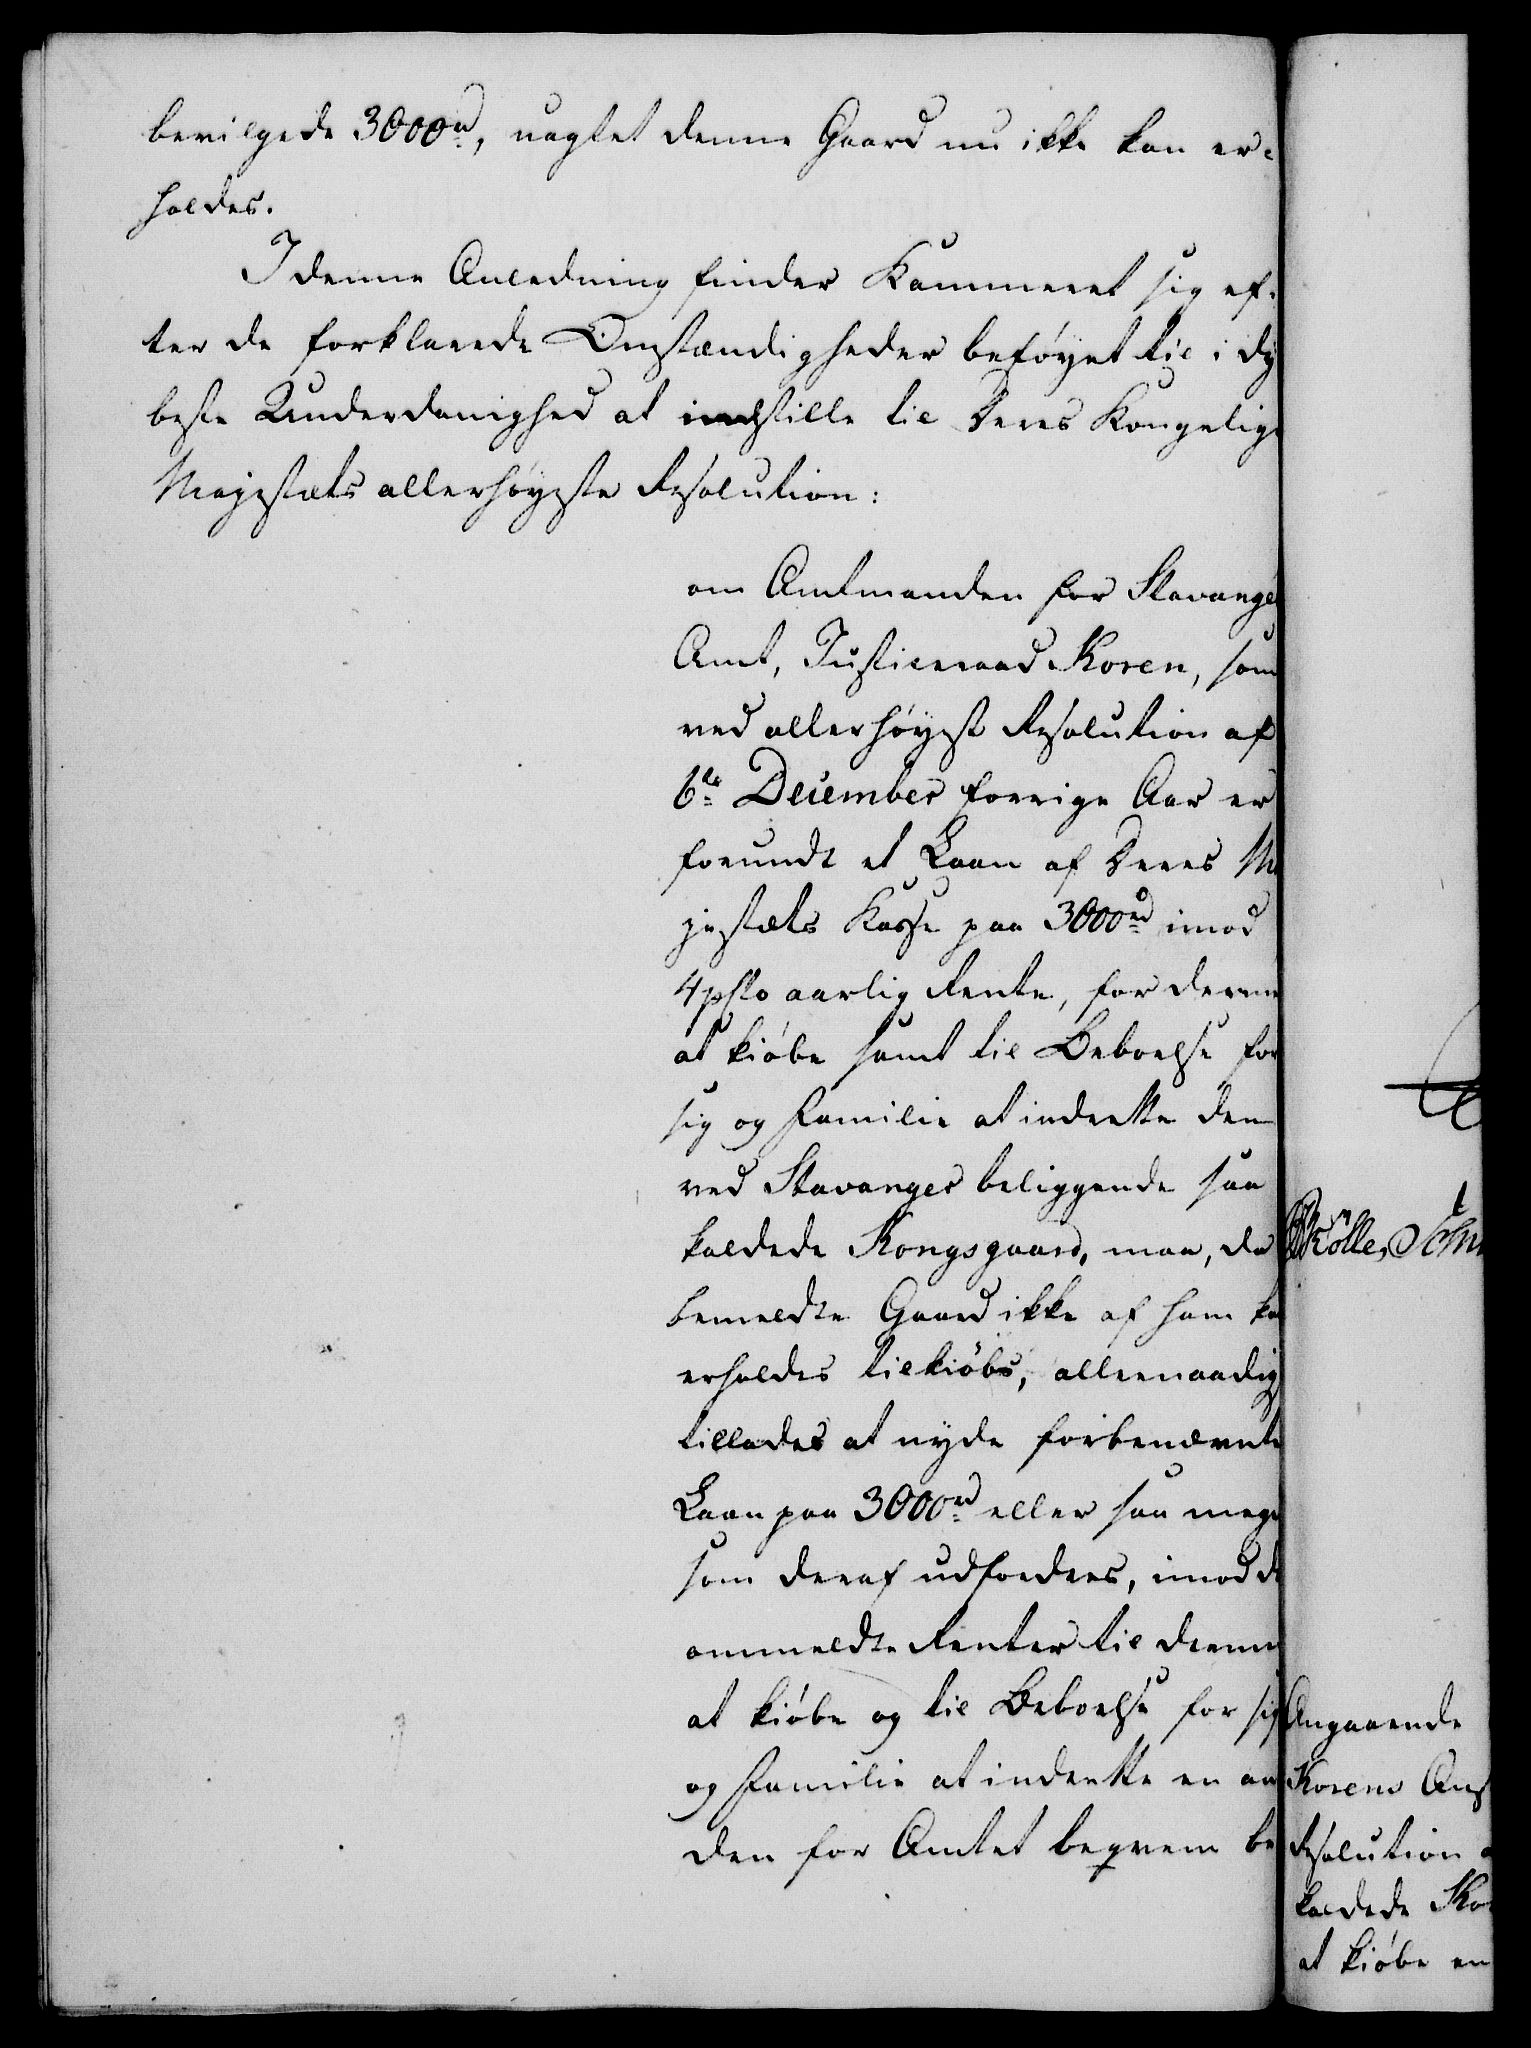 bevilgede 3000 rd, uagtet denne Gaard nu ikke kan er-
holdes.
I denne Anledning finder Kammeret sig ef-
ter de forklarede Omstændigheder beføyet til i dy
beste Underdanighed at indstille til Deres Kongelige
Majestæts allerhøyeste Resolution:
om Amtmanden for Stavanger
Amt, Justiceraad Koren, som
ved allerhøyest Resolution af
6te December forrige Aar er
forundt et Laan af Deres Ma
jestæts Kasse paa 3000 rd imod
4 pCto aarlig Rente, for derme
at kiøbe samt til Beboelse for
sig og Familie at indrette den
ved Stavanger beliggende saa
kaldede Kongsgaard, maa, da
bemeldte Gaard ikke af ham ka
erholdes tilkiøbs, allernaadig
tillades at nyde forbenævnte
Laan paa 3000 rd eller saa mege
som deraf udfordres, imod d
ommeldte Renter til derme
at kiøbe og til Beboelse for sig
og Familie at indrette en an
den for Amtet beqvem be
Kølle, Schm
Angaaende
Korens Ans
Resolution a
kaldede Ko
at kiøbe en